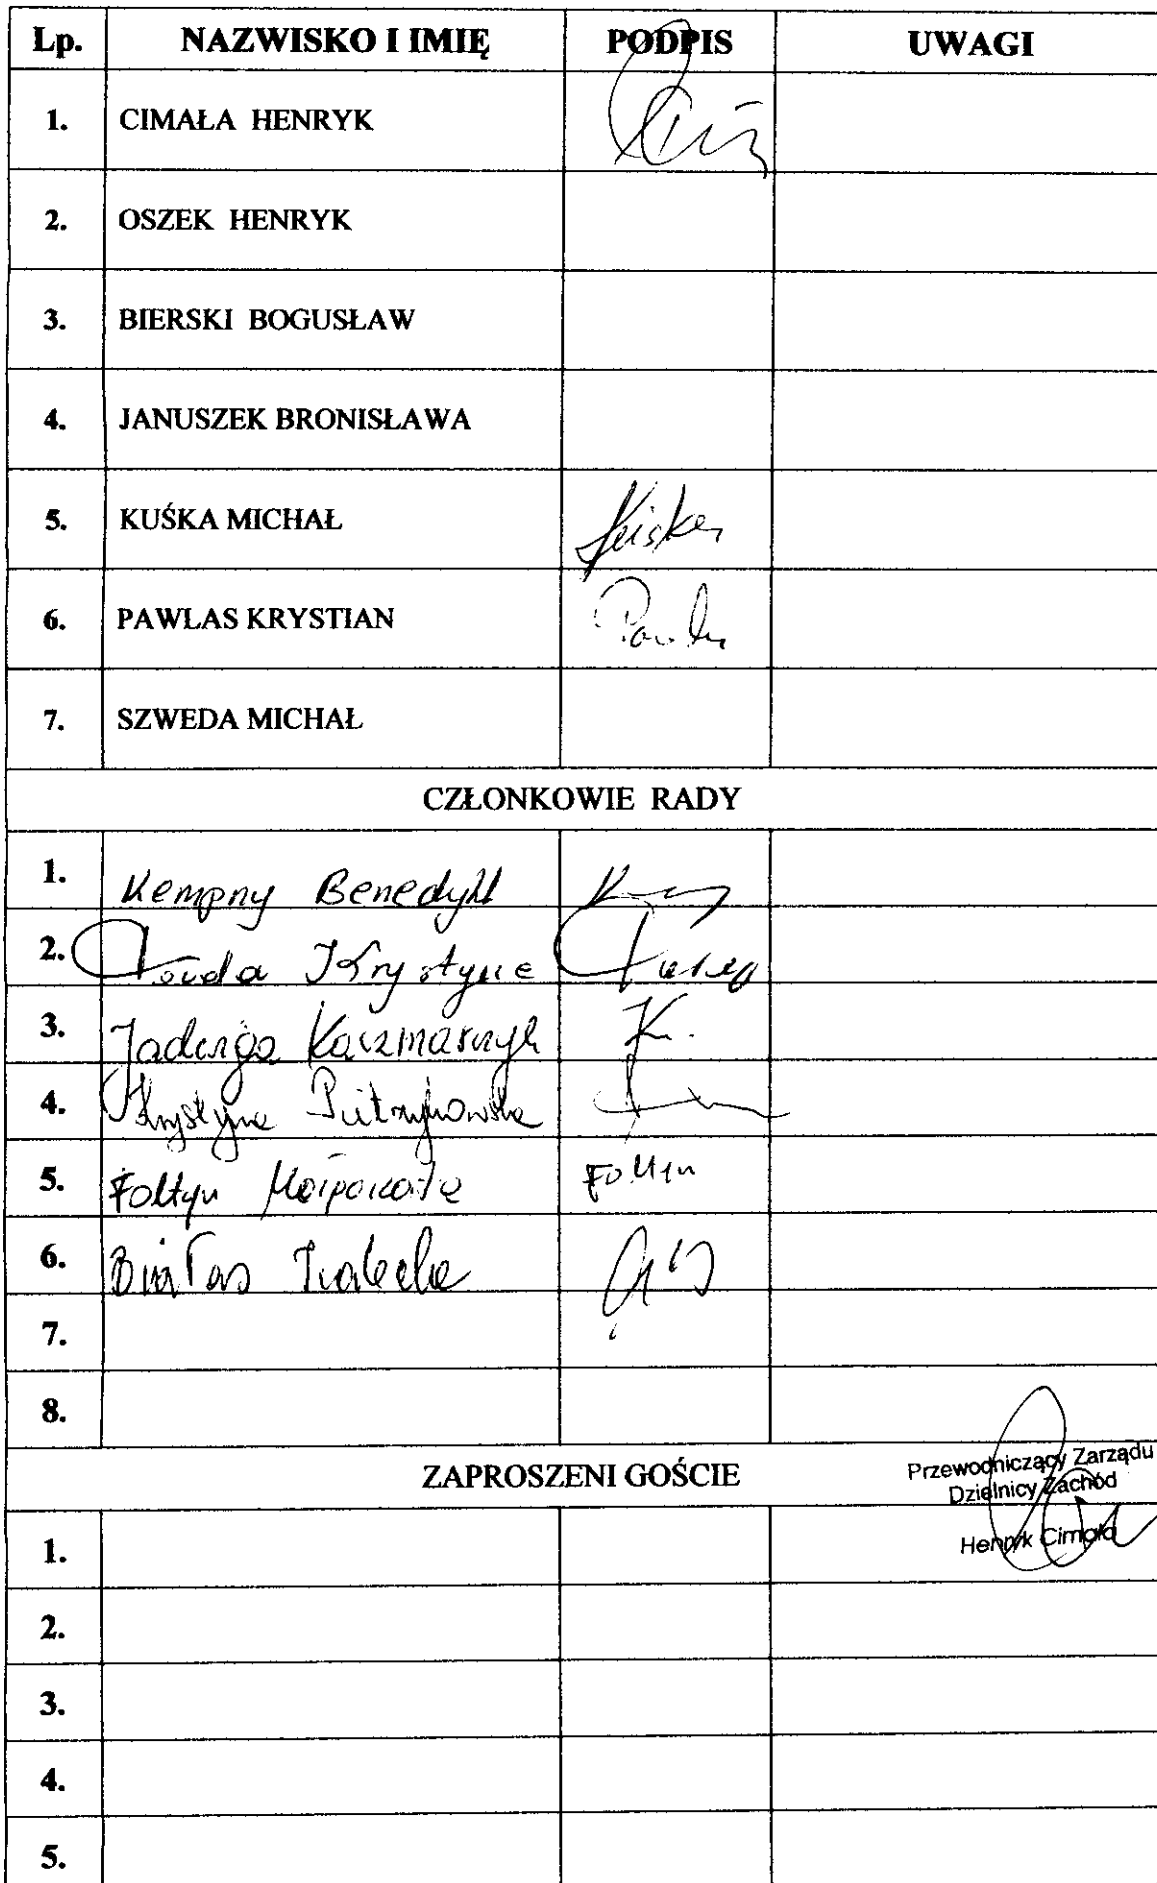 Lp. NAZWISKO I IMIĘ PODPIS UWAGI
1. CIMAŁA HENRYK
2. OSZEK HENRYK
3. BIERSKI BOGUSŁAW
4. JANUSZEK BRONISŁAWA
5. KUŚKA MICHAŁ
6. PAWLAS KRYSTIAN
7. SZWEDA MICHAŁ
CZŁONKOWIE RADY
1. Kempny Benedykt
2. Krystyna
3. Jadwiga Kaczmarczyk K.
4. Krystyna Pietrzykowska
5. Fołtyn Małgorzata Fołtyn
6. Białas
7.
8.
ZAPROSZENI GOŚCIE
Przewodniczący Zarządu
Dzielnicy Zachód
Henryk Cimała
1.
2.
3.
4.
5.